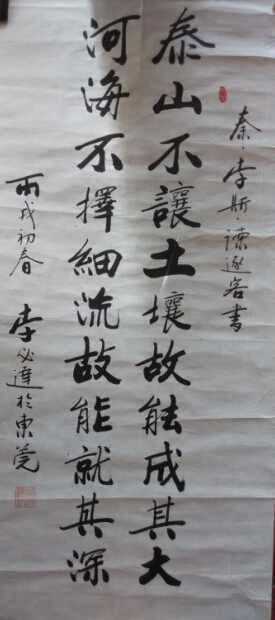 秦·李斯·谏逐客書
泰山不讓土壤故能成其大
河海不擇細流故能就其深
丙戌初春 李必達於東莞